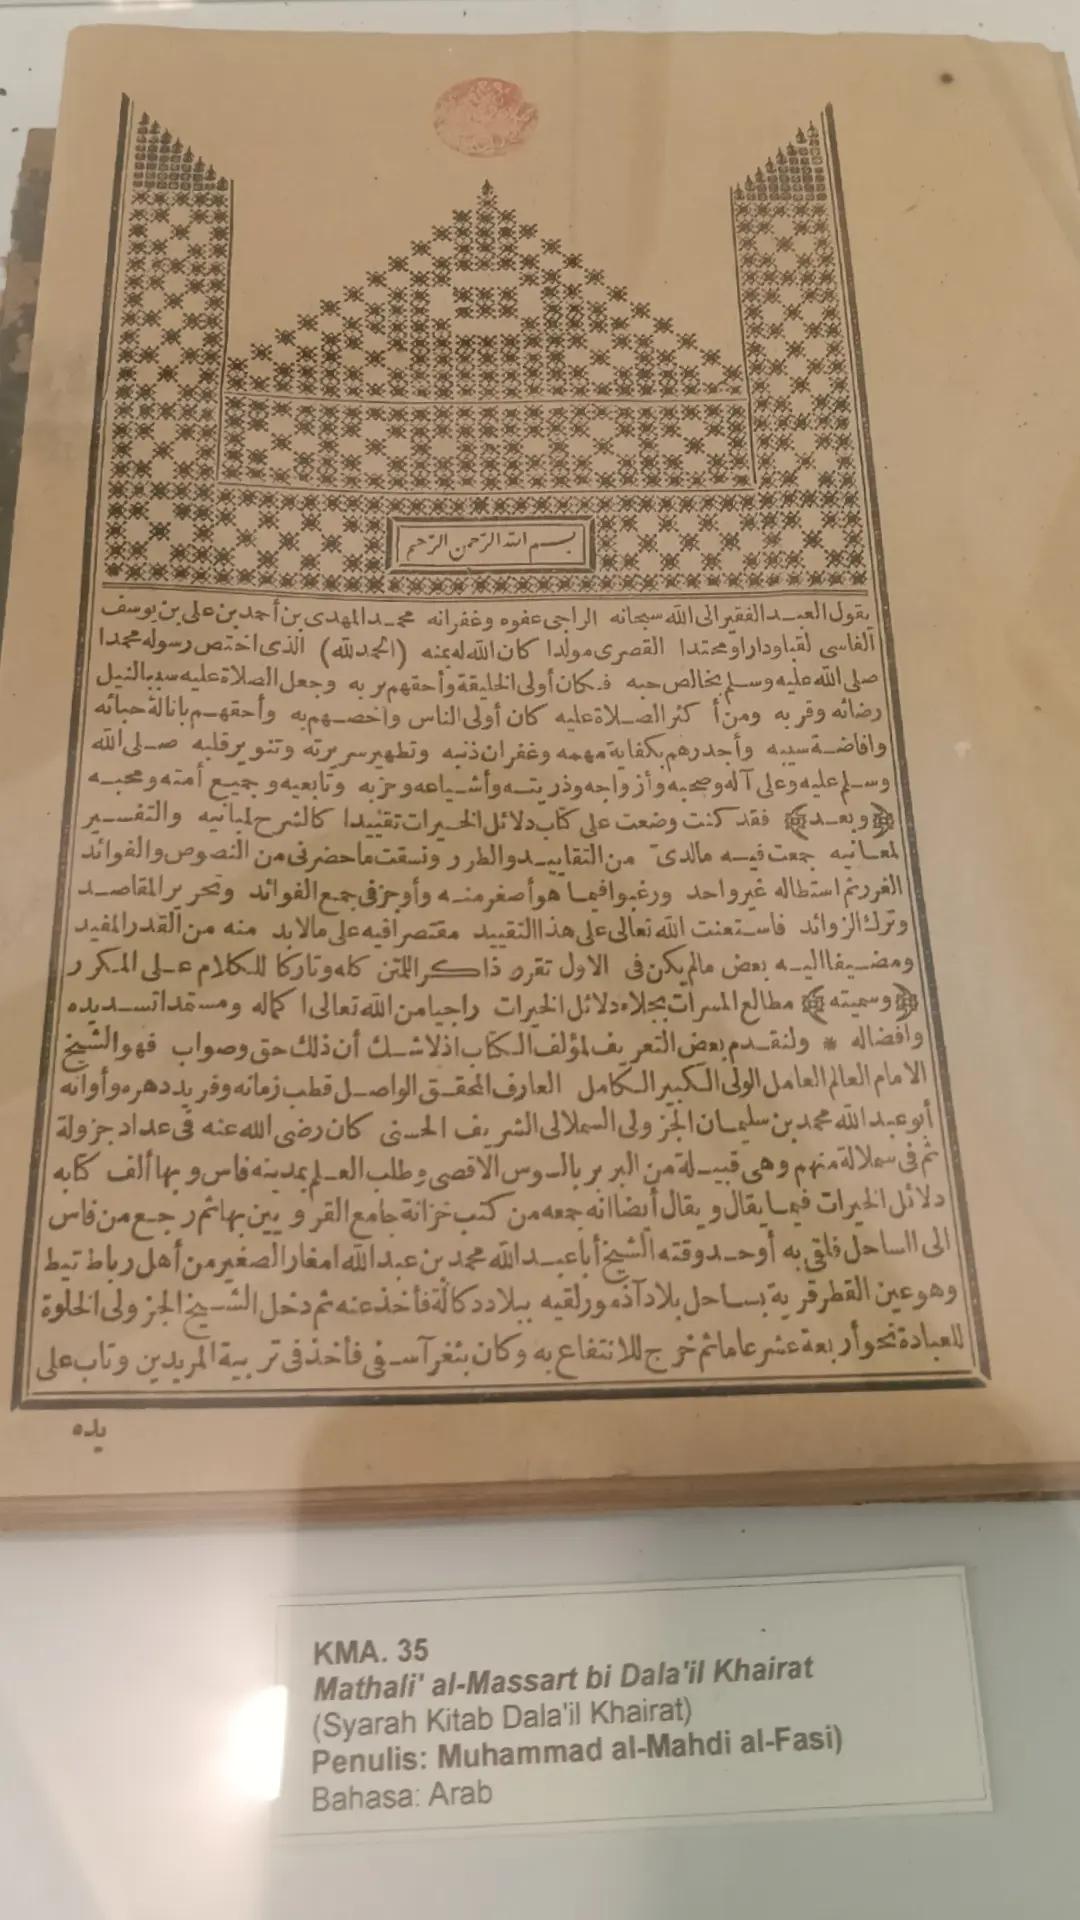 بسم الله الرحمن الرحيم
يقول العبد الفقير الى الله سبحانه الراجى عفوه وغفرانه محمد المهدى بن أحمد بن على بن يوسف
الفاسى لقبا ودارا ومحتدا القصرى مولدا كان الله له بمنه (الحمد لله) الذى اختص رسوله محمدا
صلى الله عليه وسلم بخالص حبه فكان أولى الخليقة وأحقهم بر به وجعل الصلاة عليه سببا لنيل
رضائه وقربه ومن أكثر الصلاة عليه كان أولى الناس وأخصهم به وأحقهم بانالة حبائه
وافاضة سيبه وأجدرهم بكفاية مهمه وغفران ذنبه وتطهير سريرته وتنوير قلبه صلى الله
وسلم عليه وعلى آله وصحبه وأزواجه وذريته وأشياعه وحزبه وتابعيه وجميع أمته ومحبه
(وبعد) فقد كنت وضعت على كتاب دلائل الخيرات تقييدا كالشرح لمبانيه والتفسير
لمعانيه جمعت فيه مالدى من التقاييد والطرر ونسقت ما حضرنى من النصوص والفوائد
الغرر ثم استطاله غير واحد ورغبوا فيما هو أصغر منه وأوجز فى جمع الفوائد وتحرير المقاصد
وترك الزوائد فاستعنت الله تعالى على هذا التقييد مقتصرا فيه على مالابد منه من القدر المفيد
ومضيفا اليه بعض مالم يكن فى الاول تقرر ذاكر اللتن كله وتاركا للكلام على المكرر
(وسميته) مطالع المسرات بجلاء دلائل الخيرات راجيا من الله تعالى اكماله ومستمدا تسديده
وافضاله * ولنقدم بعض التعريف لمؤلف الكتاب اذ لاشك أن ذلك حق وصواب فهو الشيخ
الامام العالم العامل الولى الكبير الكامل العارف المحقق الواصل قطب زمانه وفريد دهره وأوانه
أبو عبد الله محمد بن سليمان الجزولى السملالى الشريف الحسنى كان رضى الله عنه فى عداد جزولة
ثم فى سملالة منهم وهى قبيلة من البربر بالسوس الاقصى وطلب العلم بمدينة فاس وبها ألف كتابه
دلائل الخيرات فيما يقال ويقال أيضا انه جمعه من كتب خزانة جامع القرويين بها ثم رجع من فاس
الى الساحل فلقى به أوحد وقته الشيخ أبا عبد الله محمد بن عبد الله امغار الصغير من أهل رباط تيط
وهو عين القطر قرية بساحل بلاد آزمور لقيه ببلاد دكالة فأخذ عنه ثم دخل الشيخ الجزولى الخلوة
للعبادة نحو أربعة عشر عاما ثم خرج للانتفاع به وكان بثغر آسفى فأخذ فى تربية المريدين وتاب على
يده
KMA. 35
Mathali' al-Massart bi Dala'il Khairat
(Syarah Kitab Dala'il Khairat)
Penulis: Muhammad al-Mahdi al-Fasi)
Bahasa: Arab